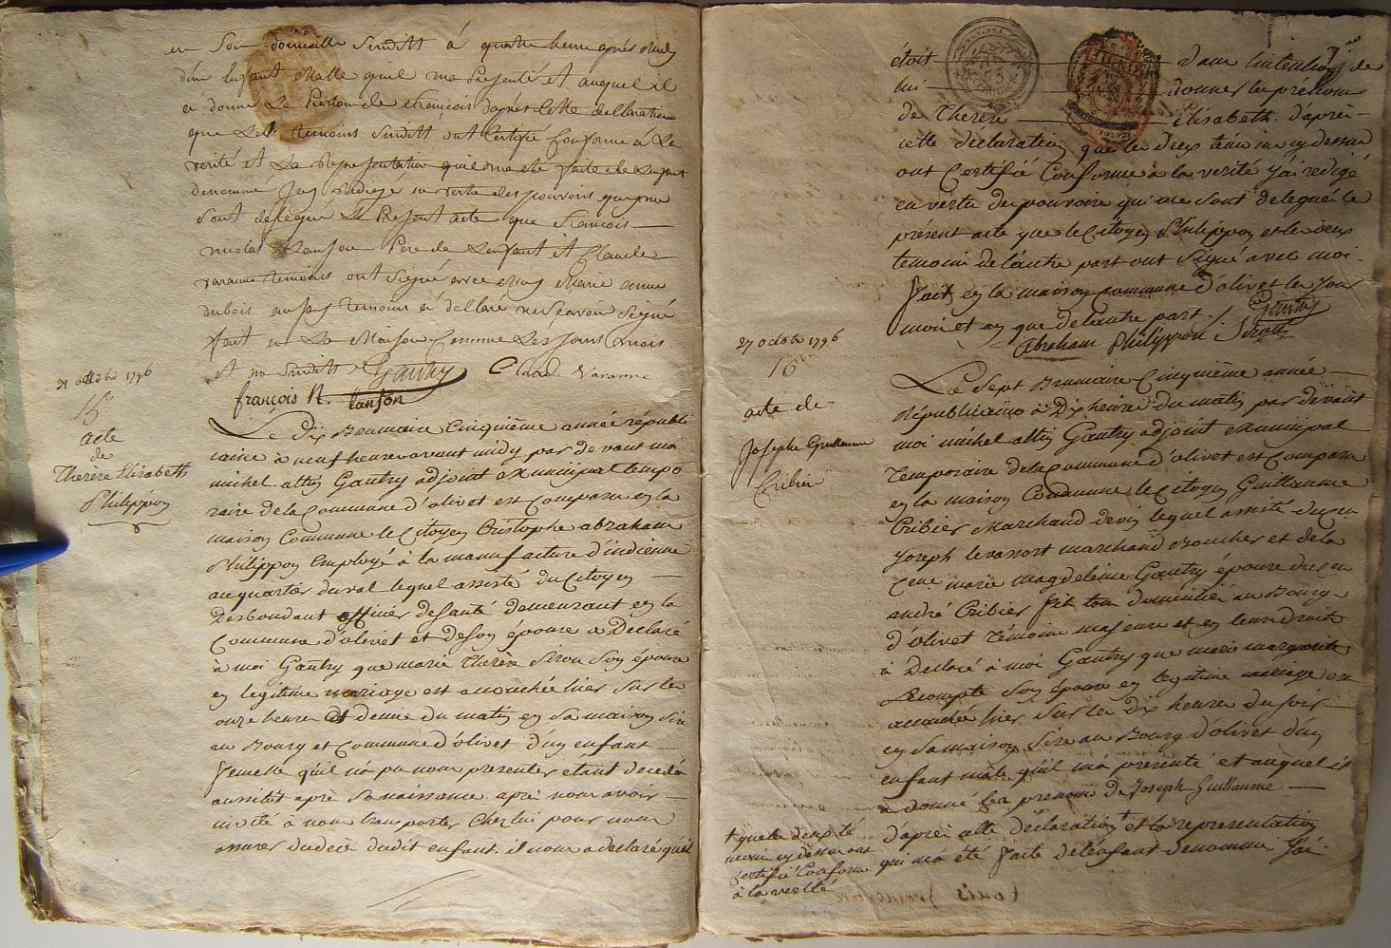 en son domicille susditt à quatre heure après midy
d'un Enfant Malle quil ma presenté et auquel il
a donné le Prénom de francois daprès Cette déclaration
que Les temoins susditt ont Certifié Conforme à La
verité et La Representation quil ma été faite de Lenfant
denommé Jay Redigé en vertu des pouvoirs qui me
sont delegué Le Present acte que francois
nicolas Lanson Pere de Lenfant et Claude
varanne temoins ont signé avec moy Marie anne
dubois aussy temoins a déllaré ne sçavoir signé
fait en La Maison Commune Les jours mois
et an susditt Gautry Claud Varanne
françois N. Lanson
31 octobre 1796
15
acte
de
Therèse Elisabeth
Philippon
Le Dix Brumaire Cinquième année républi
caine à neuf heure avant midy par devant moi
michel Gautry adjoint Municipal tempo
raire de la Commune d'olivet est Comparu en la
maison Commune le Citoyen Cristophe abraham
Philippon Employé à la manufacture d'indienne
au quartier du val lequel assisté du Citoyen
Desbondant officier de santé demeurant en la
Commune d'olivet et de son épouse a Déclaré
à moi Gautry que marie Therèse son épouse
en legitime mariage est accouchée hier sur les
onze heures et demie du matin en sa maison size
au Bourg et Commune d'olivet d'un enfant
femelle qu'il n'a pu nous presenter etant decedé
aussitôt après sa naissance après nous avoir
invité à nous transporter Chez lui pour nous
assurer du decès dudit enfant. il nous a declaré qu'il
étoit dans l'intention de
lui donner les prénoms
de Therèse Elisabeth. d'après
cette déclaration que les deux témoins cy dessus
ont Certifié Conforme à la verité j'ai redigé
en vertu des pouvoirs qui me sont delegués le
présent acte que le Citoyen Philippon et les deux
temoins de l'autre part ont signé avec moi
fait en la maison commune d'olivet les jour
mois et an que de l'autre part. Gautry
Abraham Philippon
27 octobre 1796
16
acte de
Josephe Guillaume
Cribier
Le Sept Brumaire Cinquième année
Républicaine à Dix heure du matin par devant
moi michel Gautry adjoint Municipal
Temporaire de la Commune d'olivet est Comparu
en la maison Commune le Citoyen Guillaume
Cribier Marchand de vin lequel assisté du Cn
Joseph levassort marchand Boucher et de la
Cene marie magdeleine Gautry epouse du Cn
andré Cribier tous domiciliés au Bourg
d'olivet témoins majeurs et en leurs droits
à Déclaré à moi Gautry que marie margueritte
Lecompte son épouse en legitime mariage est
accouchée hier sur les Dix heures du soir
en sa maison size au Bourg d'olivet d'un
enfant male qu'il m'a presenté et auquel il
a donné les prenoms de Joseph Guillaume
d'après cette declaration + et la representation
qui m'a été faite de l'enfant denommé J'ai
+ que les deux té
moins cy dessus ont
certifié Conforme
à la verité